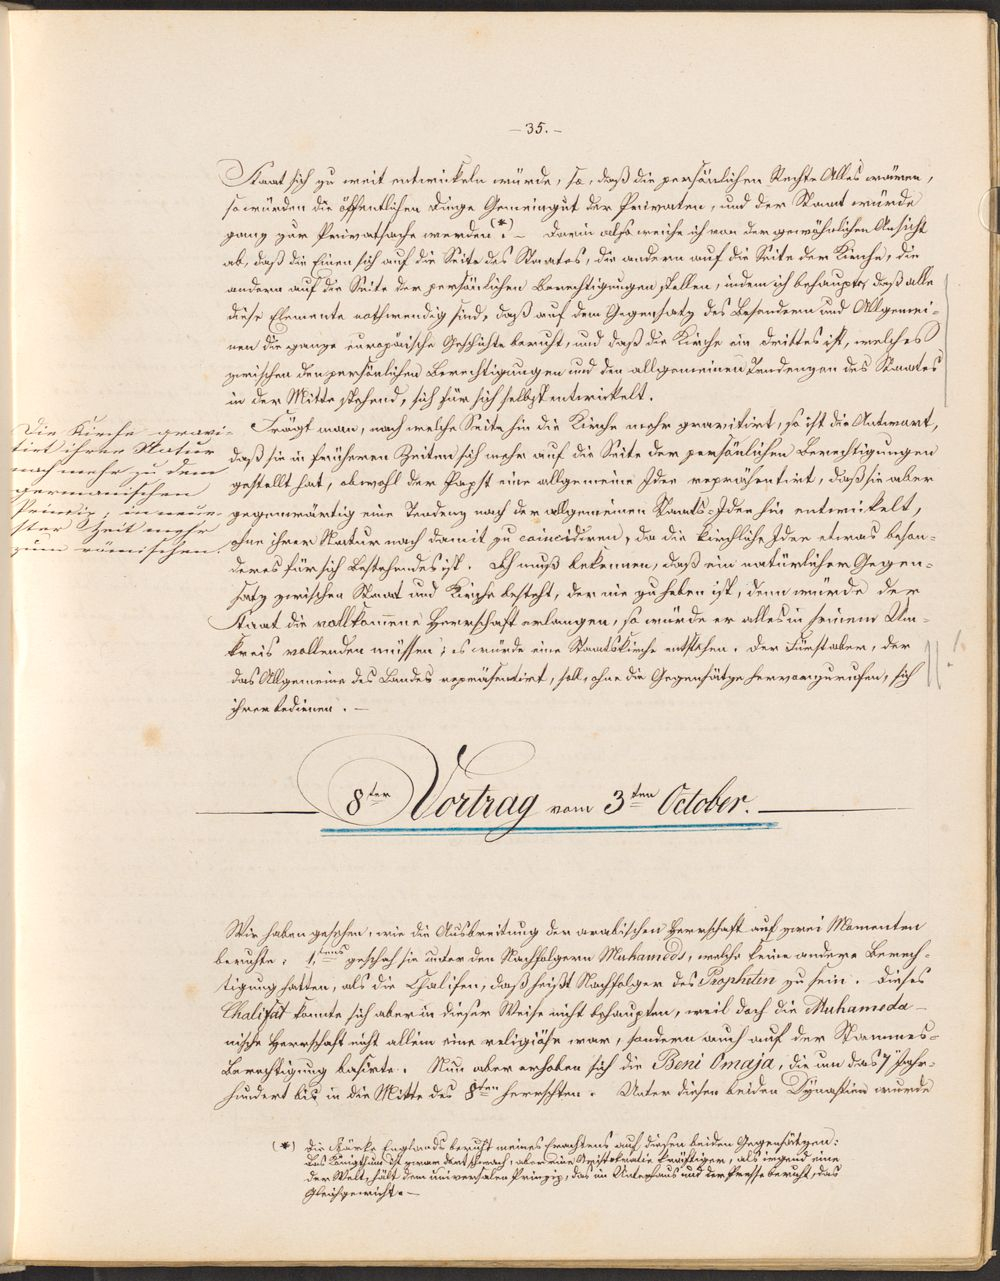 – 35. –
Staat sich zu weit entwickeln würde, so, daß die persönlichen Rechte Alles wären,
so würden die öffentlichen Dinge Gemeingut der Privaten, und der Staat würde
ganz zur Privatsache werden (*). – Darin also weiche ich von der gewöhnlichen Ansicht
ab, daß die Einen sich auf die Seite des Staates, die andern auf die Seite der Kirche, die
andern auf die Seite der persönlichen Berechtigungen stellen, indem ich behaupte, daß alle
diese Elemente nothwendig sind, daß auf dem Gegensatz des Besondern und Allgemei-
nen die ganze europäische Geschichte beruht, und daß die Kirche ein drittes ist, welches
zwischen den persönlichen Berechtigungen und den allgemeinen Tendenzen des Staates
in der Mitte stehend, sich für sich selbst entwickelt.
Frägt man, nach welche Seite hin die Kirche mehr gravitirt, so ist die Antwort,
daß sie in früheren Zeiten sich mehr auf die Seite der persönlichen Berechtigungen
gestellt hat, obwohl der Papst eine allgemeine Idee repräsentirt, daß sie aber
gegenwärtig eine Tendenz nach der allgemeinen Staats-Idee hin entwickelt,
ohne ihrer Natur nach damit zu coincidiren, da die kirchliche Idee etwas beson-
deres für sich Bestehendes ist. Ich muß bekennen, daß ein natürlicher Gegen-
satz zwischen Staat und Kirche besteht, der nie zu heben ist, denn würde der
Staat die vollkommene Herrschaft erlangen, so würde er alles in seinem Um-
kreis vollenden müssen; es würde eine Staatskirche entstehen. Der Fürst aber, der
das Allgemeine des Landes repräsentirt, soll, ohne die Gegensätze hervorzurufen, sich
ihrer bedienen. –
Die Kirche gravi-
tirt ihrer Natur
nach mehr zu dem
germanischen
Prinzip, in neue-
ster Zeit mehr
zum römischen.
8ter Vortrag vom 3ten October.
Wir haben gesehen, wie die Ausbreitung der arabischen Herrschaft auf zwei Momenten
beruhte; 1.tens geschah sie unter den Nachfolgern Muhameds, welche keine andere Berech-
tigung hatten, als die Chalifen, daß heißt Nachfolger des Propheten zu sein. Dieses
Chalifat konnte sich aber in dieser Weise nicht behaupten, weil doch die Muhameda-
nische Herrschaft nicht allein eine religiöse war, sondern auch auf der Stammes-
Berechtigung basirte. Nun aber erhoben sich die Beni Omaja, die um das 7te Jahr-
hundert bis in die Mitte des 8ten herrschten. Unter diesen beiden Dÿnastien wurde
(*) Die Stärke Englands beruht meines Erachtens auf diesen beiden Gegensätzen:
das Königthum ist zwar dort schwach, aber eine Aristokratie kräftiger, als irgend eine
der Welt, hält dem universalen Prinzip, das im Unterhaus und der Presse beruht, das
Gleichgewicht. –